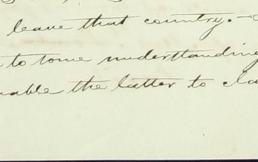 leave that country. -
to some understanding
the latter to